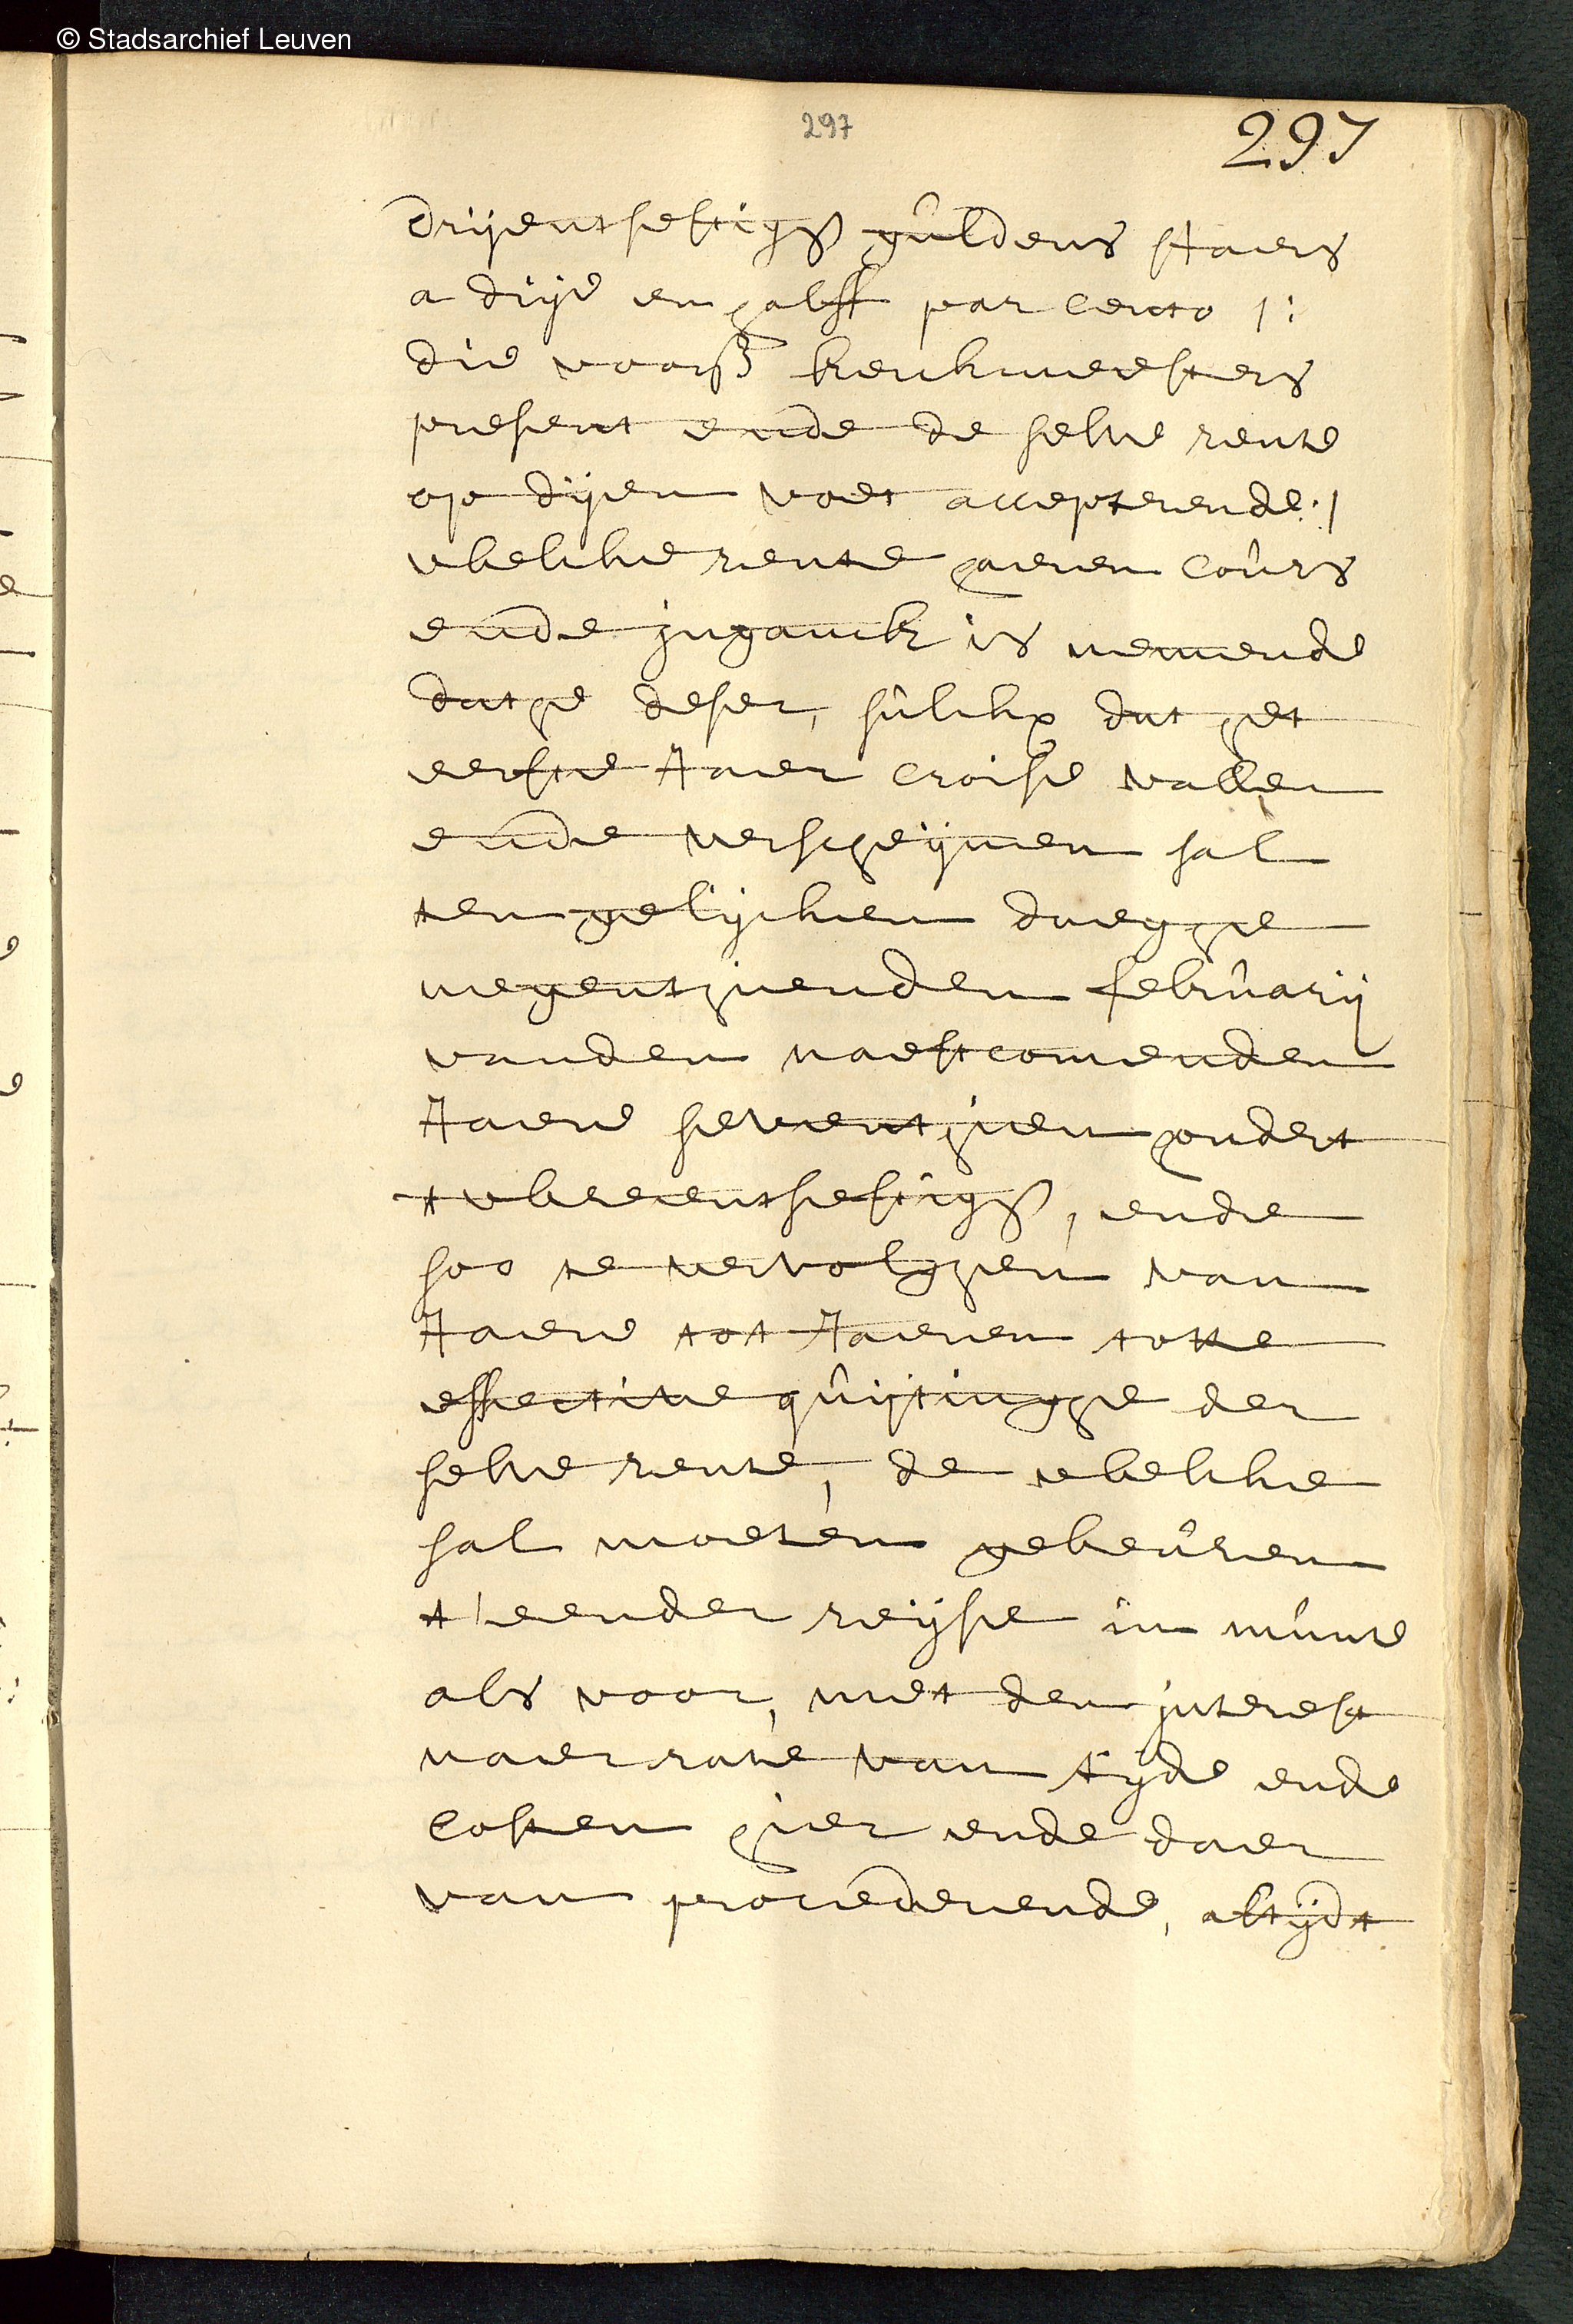 © Stadsarchief Leuven
297
297
drijentsestigh guldens sJaers
a drije en halff par cento /:
die voors kerckmeesters
present ende de selve rente
op dijen voet accepterende :/
welcke rente haeren cours
ende inganck is nemende
dathe deser, sulckx dat het
eerste Jaer croise vallen
ende verscheijnen sal
ten gelijcken daeghe
negenthienden februarij
vanden naestcomenden
Jaere seventhien hondert
tweeentsestigh, ende
soo te vervolghen van
Jaere tot Jaeren totte
effective quijtinghe der
selve rente, de welcke
sal moeten gebeuren
t'eender reijse in munte
als voor, met den interest
naer rate van tijde ende
costen hier ende daer
van procederende, altijdt